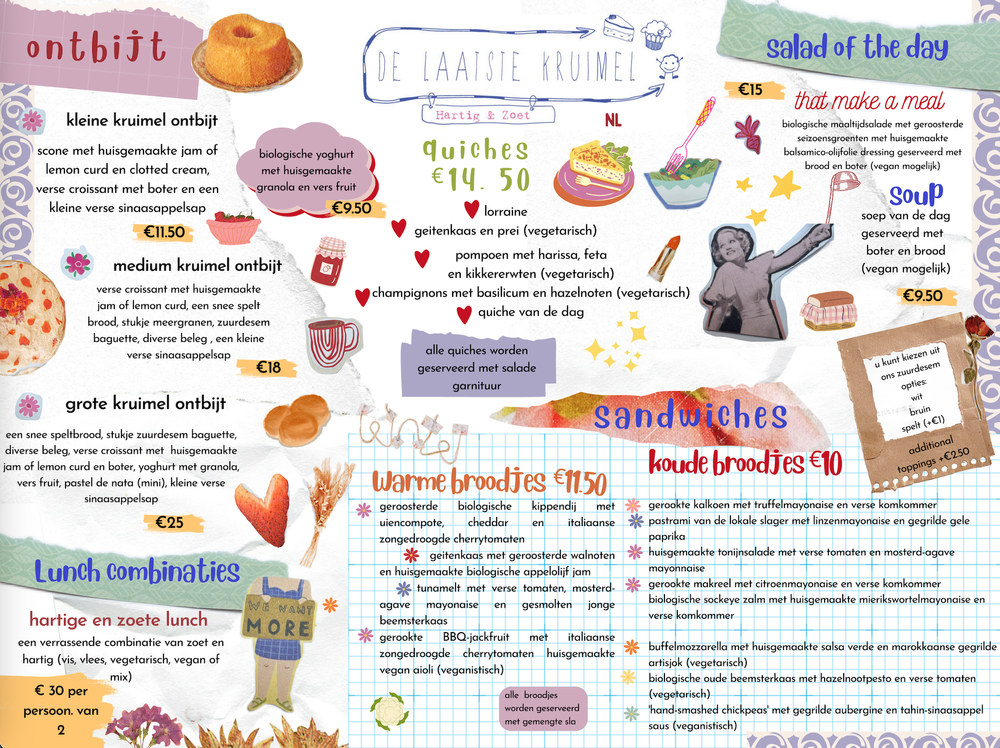 ontbijt
kleine kruimel ontbijt
scone met huisgemaakte jam of
lemon curd en clotted cream,
verse croissant met boter en een
kleine verse sinaasappelsap
€11.50
biologische yoghurt
met huisgemaakte
granola en vers fruit
€9.50
medium kruimel ontbijt
verse croissant met huisgemaakte
jam of lemon curd, een snee spelt
brood, stukje meergranen, zuurdesem
baguette, diverse beleg , een kleine
verse sinaasappelsap
€18
grote kruimel ontbijt
een snee speltbrood, stukje zuurdesem baguette,
diverse beleg, verse croissant met huisgemaakte
jam of lemon curd en boter, yoghurt met granola,
vers fruit, pastel de nata (mini), kleine verse
sinaasappelsap
€25
Lunch combinaties
hartige en zoete lunch
een verrassende combinatie van zoet en
hartig (vis, vlees, vegetarisch, vegan of
mix)
€ 30 per
persoon. van
2
WE WANT
MORE
DE LAATSTE KRUIMEL
Hartig & Zoet
NL
quiches
€14. 50
lorraine
geitenkaas en prei (vegetarisch)
pompoen met harissa, feta
en kikkererwten (vegetarisch)
champignons met basilicum en hazelnoten (vegetarisch)
quiche van de dag
alle quiches worden
geserveerd met salade
garnituur
salad of the day
€15
that make a meal
biologische maaltijdsalade met geroosterde
seizoensgroenten met huisgemaakte
balsamico-olijfolie dressing geserveerd met
brood en boter (vegan mogelijk)
soup
soep van de dag
geserveerd met
boter en brood
(vegan mogelijk)
€9.50
u kunt kiezen uit
ons zuurdesem
opties:
wit
bruin
spelt (+€1)
additional
toppings +€2.50
winter
sandwiches
warme broodjes €11.50
geroosterde biologische kippendij met
uiencompote, cheddar en italiaanse
zongedroogde cherrytomaten
geitenkaas met geroosterde walnoten
en huisgemaakte biologische appelolijf jam
tunamelt met verse tomaten, mosterd-
agave mayonaise en gesmolten jonge
beemsterkaas
gerookte BBQ-jackfruit met italiaanse
zongedroogde cherrytomaten huisgemaakte
vegan aioli (veganistisch)
alle broodjes
worden geserveerd
met gemengte sla
koude broodjes €10
gerookte kalkoen met truffelmayonaise en verse komkommer
pastrami van de lokale slager met linzenmayonaise en gegrilde gele
paprika
huisgemaakte tonijnsalade met verse tomaten en mosterd-agave
mayonnaise
gerookte makreel met citroenmayonaise en verse komkommer
biologische sockeye zalm met huisgemaakte mierikswortelmayonaise en
verse komkommer
buffelmozzarella met huisgemaakte salsa verde en marokkaanse gegrilde
artisjok (vegetarisch)
biologische oude beemsterkaas met hazelnootpesto en verse tomaten
(vegetarisch)
'hand-smashed chickpeas' met gegrilde aubergine en tahin-sinaasappel
saus (veganistisch)